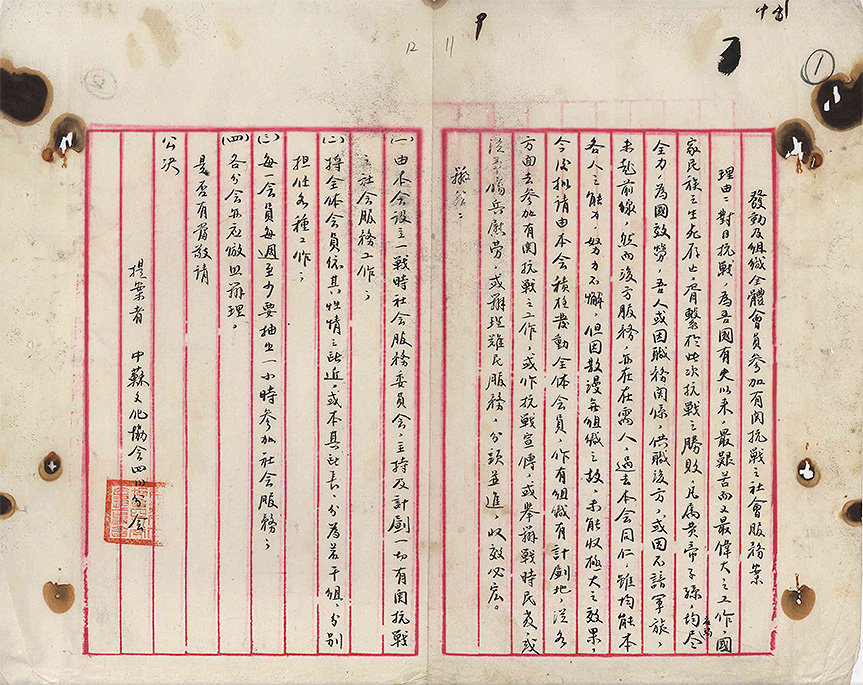 發動及組織全體會員參加有関抗戰之社會服務案
理由：對日抗戰，為吾國有史以來，最艱苦而又最偉大之工作，國
家民族之生死存亡，胥繫於此次抗戰之勝敗，凡屬黄帝子孫，均應盡
全力，為國效勞，吾人或因職務関係，供職後方，或因不諳軍旅，
未赴前線，然而後方服務，亦在在需人，過去本会同仁，雖均能本
各人之能力，努力不懈，但因散漫無組織之故，未能收極大之效果，
今後拟請由本会積極發動全体会員，作有組織有計劃地，從各
方面去參加有関抗戰之工作，或作抗戰宣傳，或舉辦戰時民教，或
從事傷兵慰勞，或辦理難民服務，分頭並進，收效必宏。
辦法：
(一)由本会設立一戰時社会服務委員会，主持及計劃一切有関抗戰
之社会服務工作；
(二)將全体会員依其性情之所近，或本其所長，分為若干組，分别
担任各種工作；
(三)每一会員每週至少要抽出一小時參加社会服務；
(四)各分会亦应倣照辦理。
是否有當敬請
公决
提案者 中蘇文化協会四川分会
1
11
12